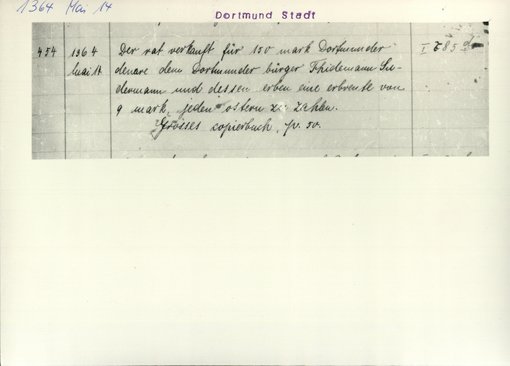 1364 Mai 14
Dortmund Stadt
454 1364 Der rat verkauft für 150 mark Dortmunder I 785
mai 14 denare dem Dortmunder bürger Thidemann Su-
dermann und dessen erben eine erbrente von
9 mark, jeden ostern zu zahlen.
Grosses copierbuch, p. 50.